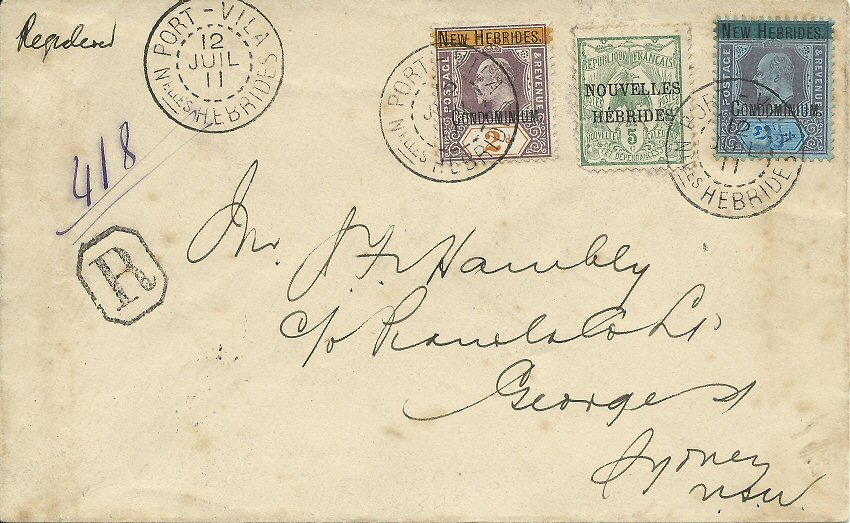 Registered
PORT-VILA
12
JUIL
11
Nlles HEBRIDES
418
R
NEW HEBRIDES.
POSTAGE & REVENUE
CONDOMINIUM.
2
RÉPUBLIQUE FRANÇAISE
NOUVELLES
HÉBRIDES
5
NEW HEBRIDES.
POSTAGE & REVENUE
CONDOMINIUM.
PORT
Nlles HEBRIDES
11
Nlles HEBRIDES
Mr. J. F. Hambly
c/o
George St
Sydney
N.S.W.